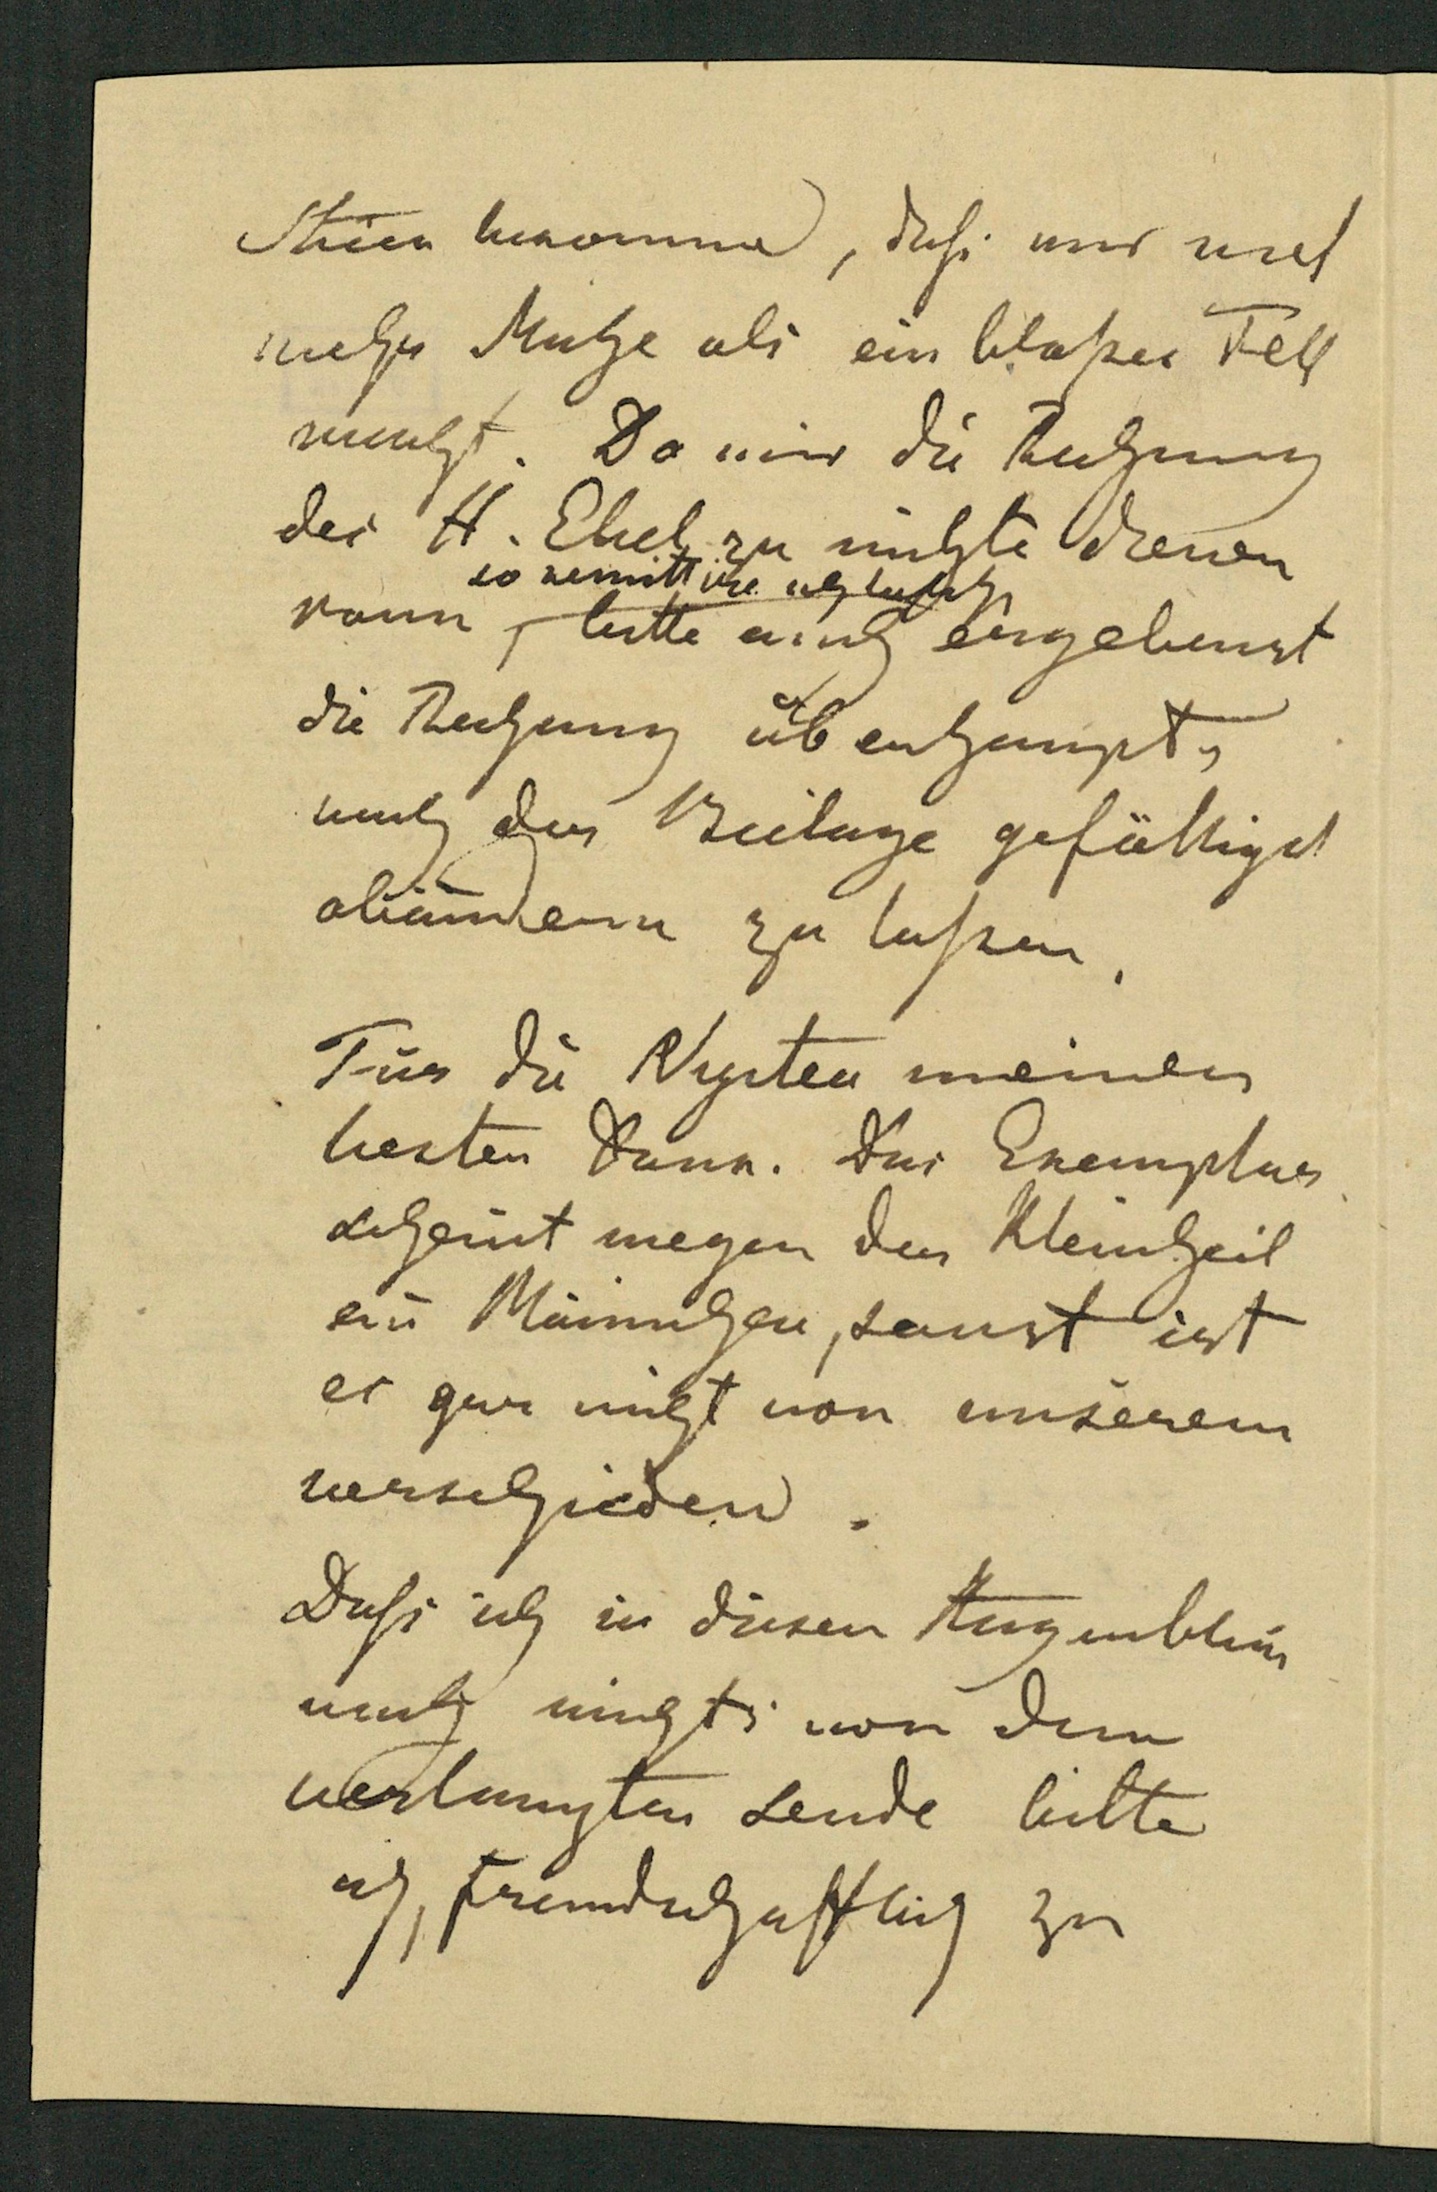 Thier bekomme, daß mir viel
mehr Mühe als ein bloßes Fell
macht. Da mir die Rechnung
des H. Ebel zu nichts dienen
so remittire ich dieselbe
kann, bitte auch ergebenst
die Rechnung überhaupt,
nach der Beilage gefälligst
abändern zu laßen.
Für die Nyctea meinen
besten Dank. Das Exemplar
scheint wegen der Kleinheit
ein Männchen, sonst ist
es gar nicht von unserem
verschieden.
Daß ich in diesen Augenblick
noch nichts von dem
verlangten sende bitte
ich, freundschaftlich zu